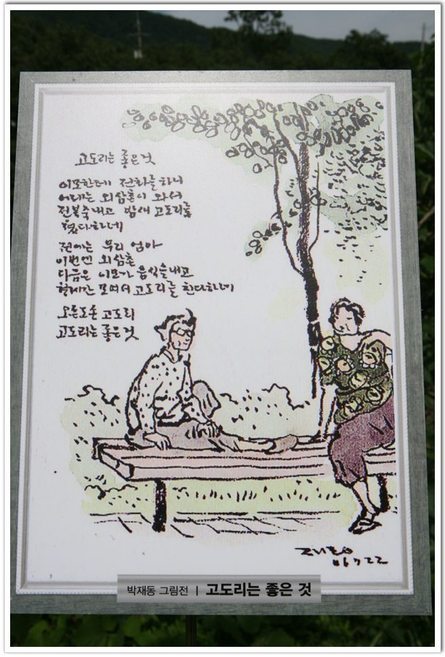 고도리는 좋은 것
이모한테 전화를 하니
어제는 외삼촌이 와서
전복죽 내고 밤새 고도리를
쳤다 하네
전에는 우리 엄마
이번엔 외삼촌
다음은 이모가 음식을 내고
형제간 모여서 고도리를 친다 하네
오른도순 고도리
고도리는 좋은 것
06 7 22
박재동 그림전 | 고도리는 좋은 것